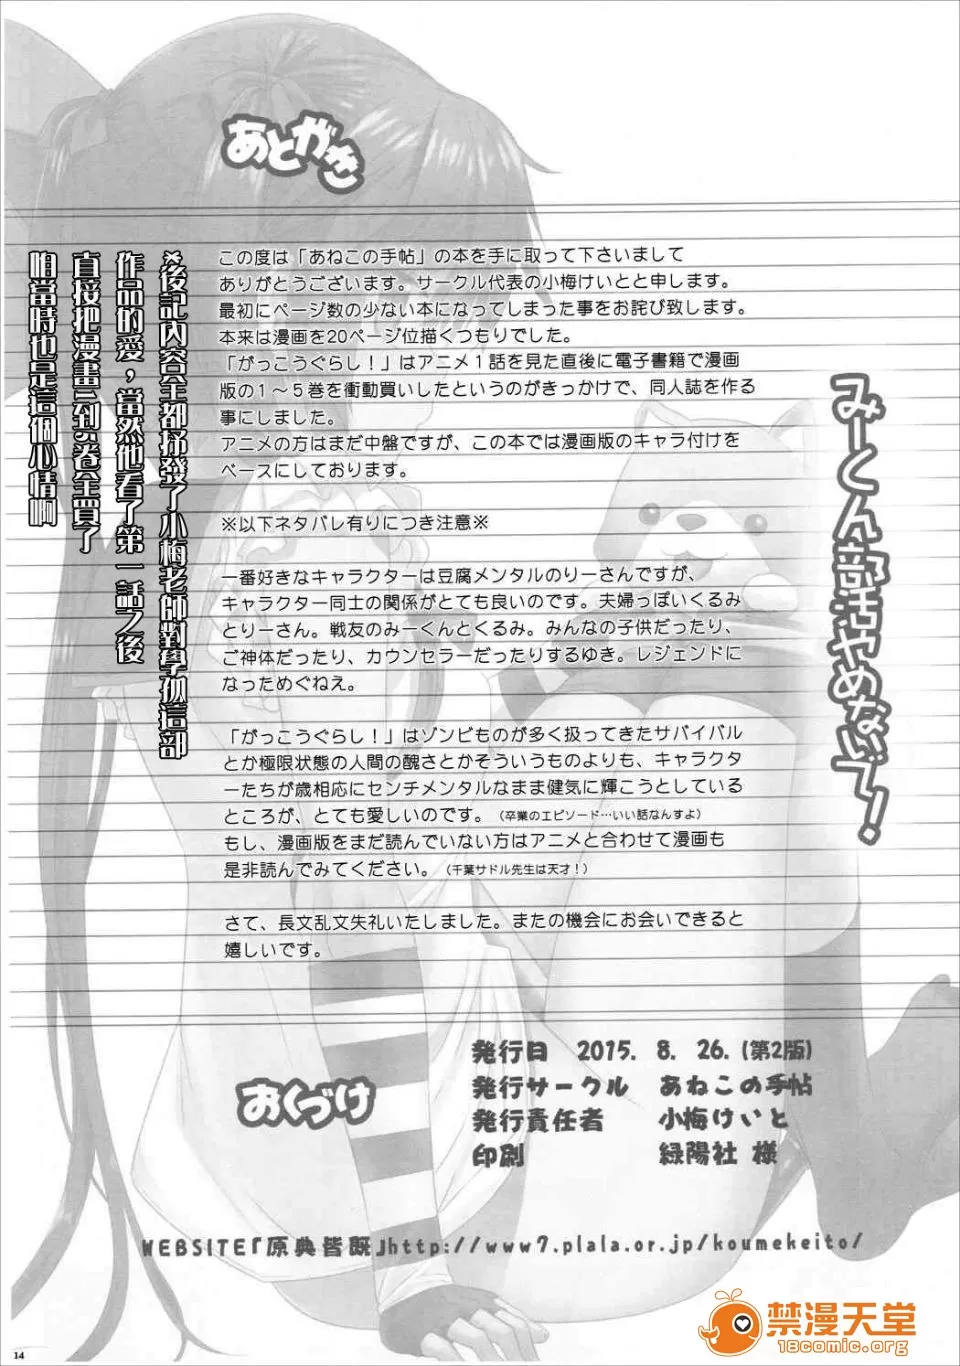 あとがき
この度は「あねこの手帖」の本を手に取って下さいまして
ありがとうございます。サークル代表の小梅けいとと申します。
最初にページ数の少ない本になってしまった事をお詫び致します。
本来は漫画を20ページ位描くつもりでした。
「がっこうぐらし！」はアニメ１話を見た直後に電子書籍で漫画
版の１～５巻を衝動買いしたというのがきっかけで、同人誌を作る
事にしました。
アニメの方はまだ中盤ですが、この本では漫画版のキャラ付けを
ベースにしております。
※以下ネタバレ有りにつき注意※
一番好きなキャラクターは豆腐メンタルのりーさんですが、
キャラクター同士の関係がとても良いのです。夫婦っぽいくるみ
とりーさん。戦友のみーくんとくるみ。みんなの子供だったり、
ご神体だったり、カウンセラーだったりするゆき。レジェンドに
なっためぐねえ。
「がっこうぐらし！」はゾンビものが多く扱ってきたサバイバル
とか極限状態の人間の醜さとかそういうものよりも、キャラクタ
ーたちが歳相応にセンチメンタルなまま健気に輝こうとしている
ところが、とても愛しいのです。（卒業のエピソード…いい話なんすよ）
もし、漫画版をまだ読んでいない方はアニメと合わせて漫画も
是非読んでみてください。（千葉サドル先生は天才！）
さて、長文乱文失礼いたしました。またの機会にお会いできると
嬉しいです。
みーくん部活やめないで！
*後記內容全都抒發了小梅老師對學孤這部
作品的愛，當然他看了第一話之後
直接把漫畫1到5卷全買了
咱當時也是這個心情啊
おくづけ
発行日 2015. 8. 26. (第2版)
発行サークル あねこの手帖
発行責任者 小梅けいと
印刷 緑陽社 様
WEBSITE『原典皆既』http://www7.plala.or.jp/koumekeito/
14
禁漫天堂
18comic.org